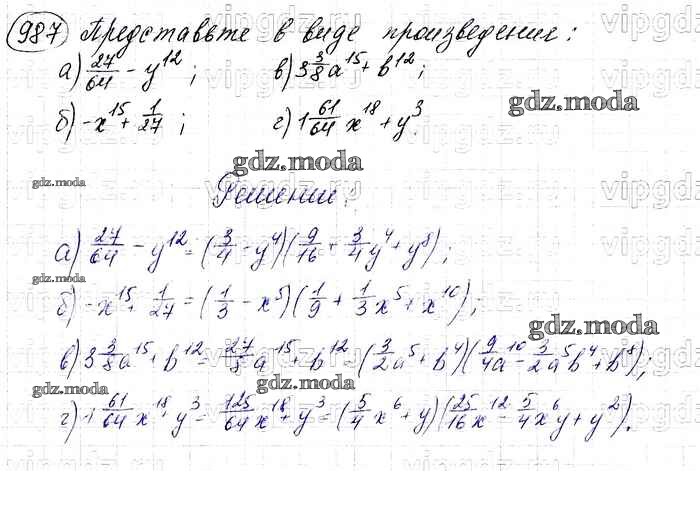 987 Представьте в виде произведение:
а) 27/64 - y^12; в) 3 3/8 a^15 + b^12;
б) -x^15 + 1/27; г) 1 61/64 x^18 + y^3.
gdz.moda
gdz.moda
gdz.moda
Решение:
а) 27/64 - y^12 = (3/4 - y^4)(9/16 + 3/4 y^4 + y^8);
gdz.moda
б) -x^15 + 1/27 = (1/3 - x^5)(1/9 + 1/3 x^5 + x^10);
gdz.moda
в) 3 3/8 a^15 + b^12 = 27/8 a^15 + b^12 = (3/2 a^5 + b^4)(9/4 a^10 - 3/2 a^5 b^4 + b^8);
gdz.moda
г) 1 61/64 x^18 + y^3 = 125/64 x^18 + y^3 = (5/4 x^6 + y)(25/16 x^12 - 5/4 x^6 y + y^2).
gdz.moda